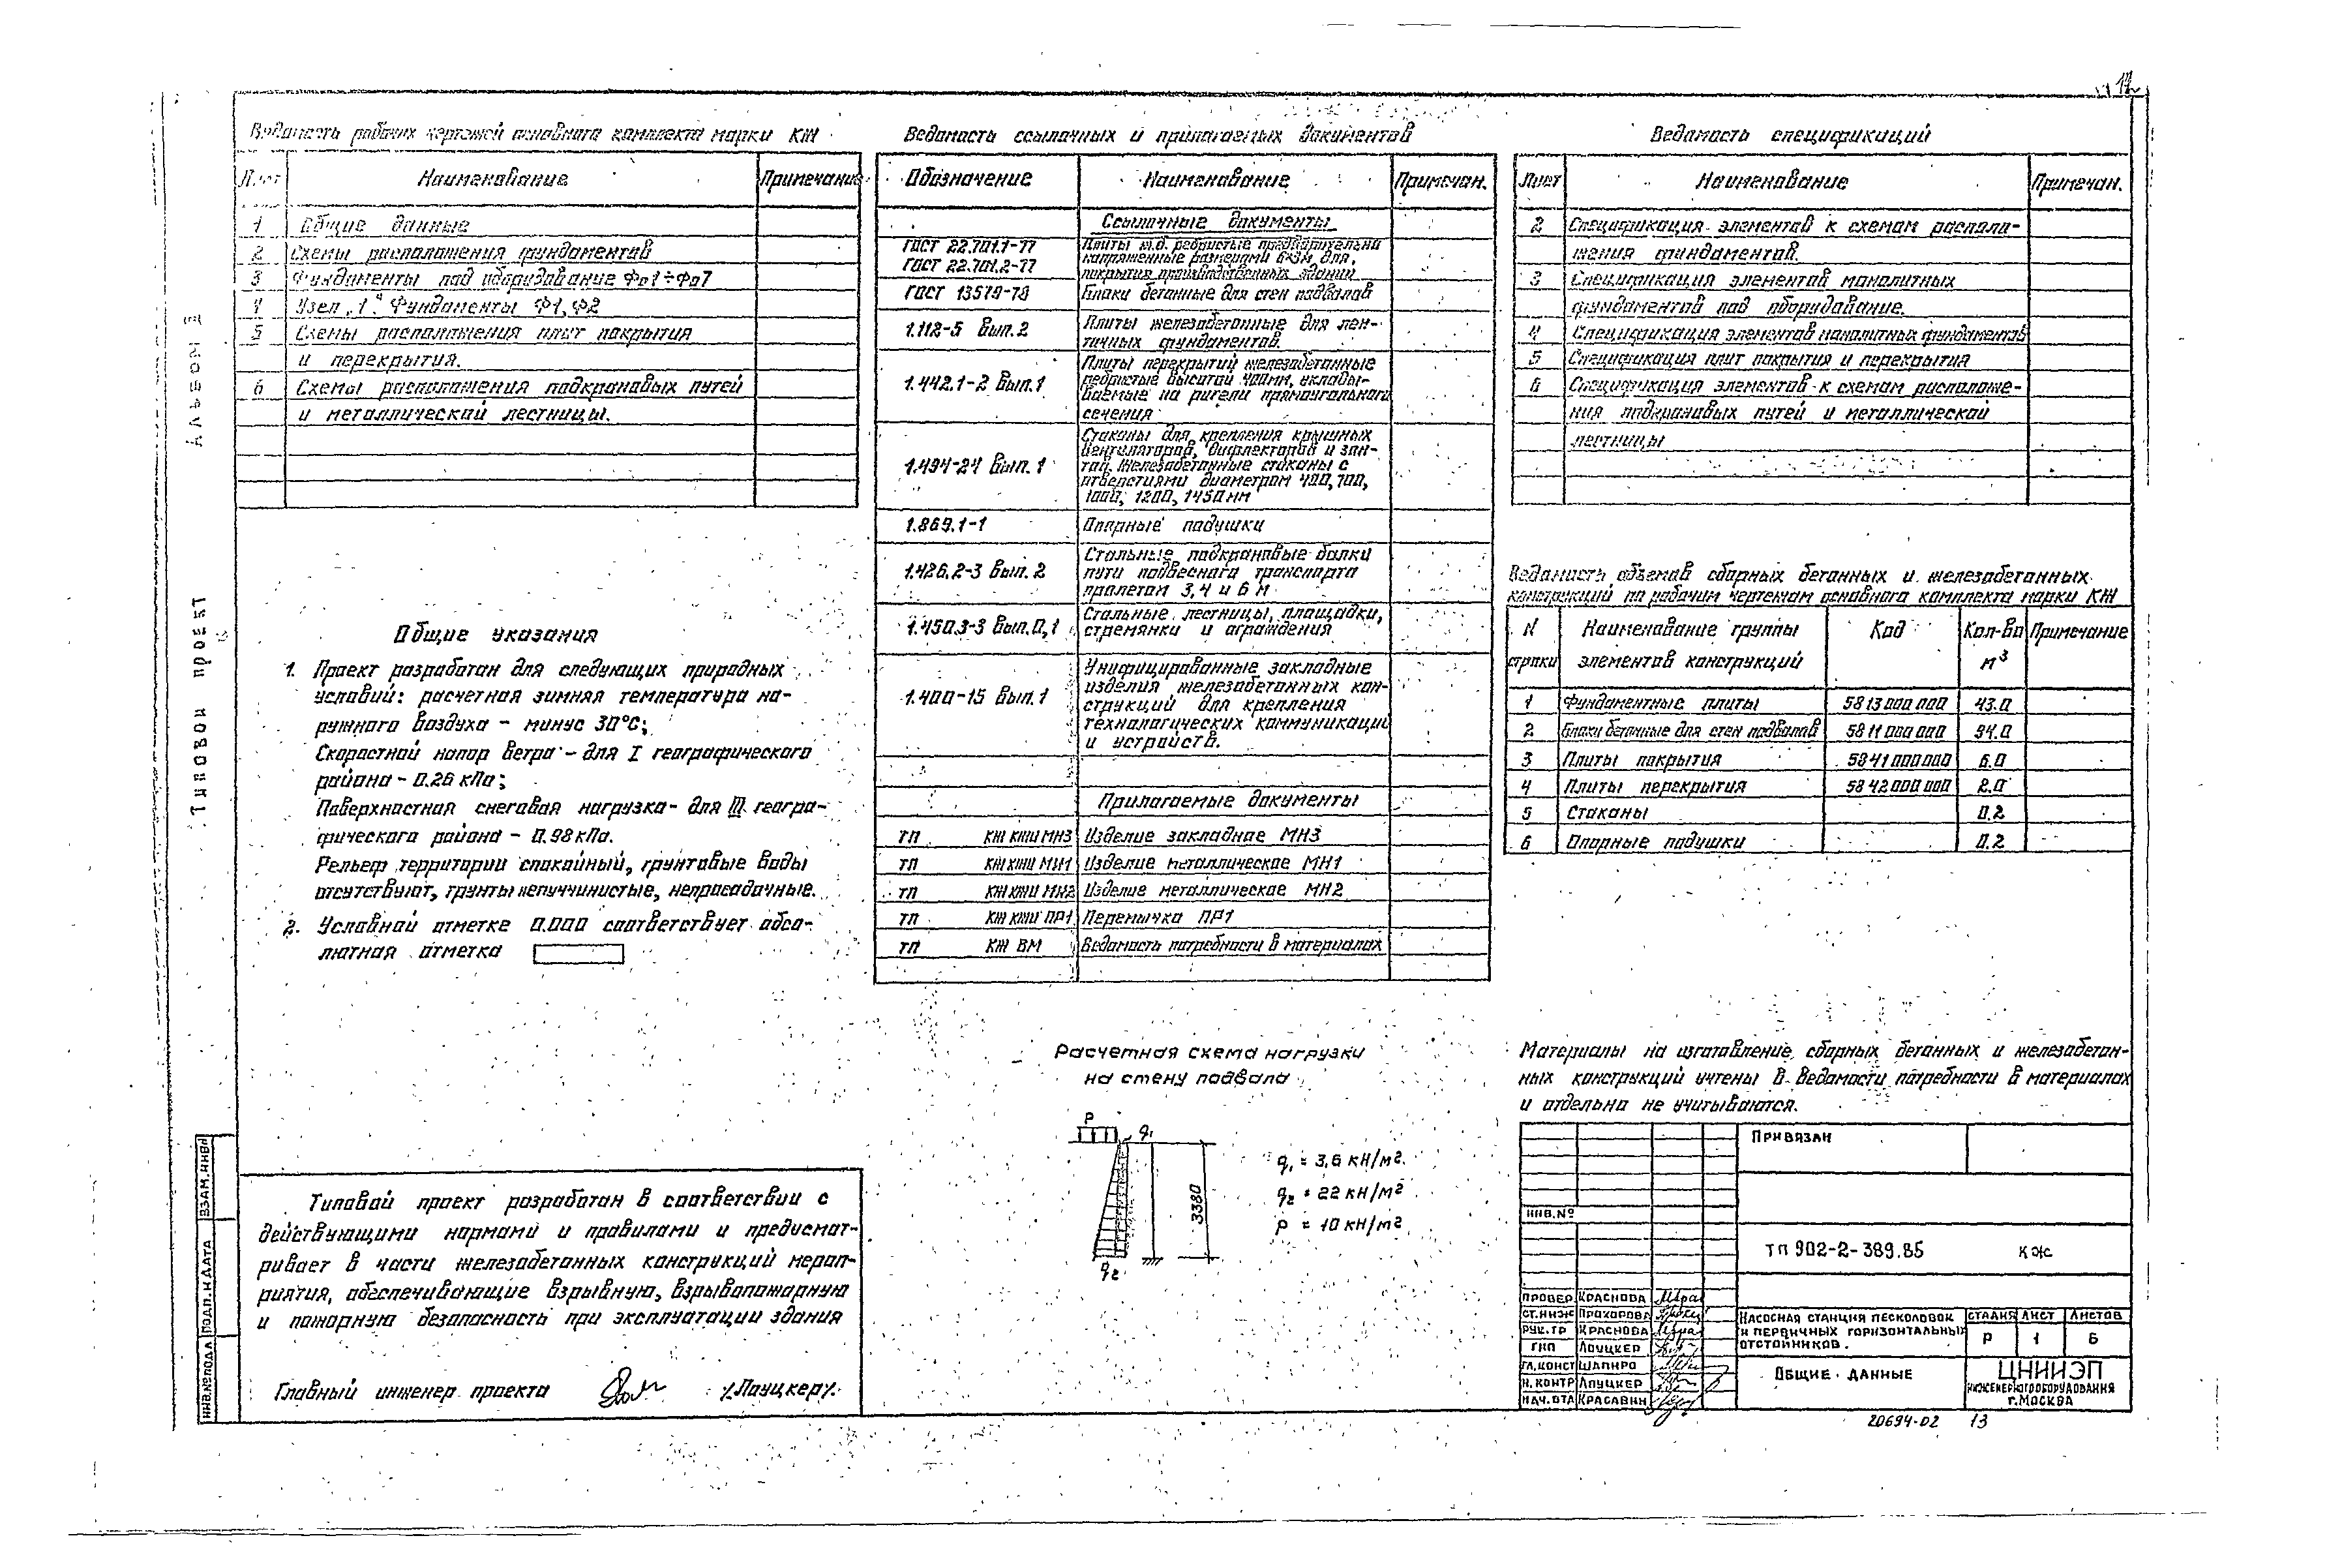 12
Альбом 3
Типовой проект
Ведомость рабочих чертежей основного комплекта марки КЖ
Лист Наименование Примечание
1 Общие данные
2 Схемы расположения фундаментов
3 Фундаменты под оборудование Фо1÷Фо7
4 Узел „1". Фундаменты Ф1, Ф2
5 Схемы расположения плит покрытия
и перекрытия.
6 Схемы расположения подкрановых путей
и металлической лестницы.
Общие указания
1. Проект разработан для следующих природных
условий: расчетная зимняя температура на-
ружного воздуха – минус 30°С;
Скоростной напор ветра – для I географического
района – 0.26 кПа;
Поверхностная снеговая нагрузка – для III геогра-
фического района – 0.98 кПа.
Рельеф территории спокойный, грунтовые воды
отсутствуют, грунты непучинистые, непросадочные.
2. Условной отметке 0.000 соответствует абсо-
лютная отметка
Типовой проект разработан в соответствии с
действующими нормами и правилами и предусмат-
ривает в части железобетонных конструкций мероп-
риятия, обеспечивающие взрывную, взрывопожарную
и пожарную безопасность при эксплуатации здания
Главный инженер проекта /Лауцкер/
Ведомость ссылочных и прилагаемых документов
Обозначение Наименование Примечан.
Ссылочные документы
ГОСТ 22.701.1-77 Плиты ж.б. ребристые предварительно
напряженные размерами 6×3м, для
ГОСТ 22.701.2-77 покрытия производственных зданий
ГОСТ 13579-78 Блоки бетонные для стен подвалов
1.112-5 Вып. 2 Плиты железобетонные для лен-
точных фундаментов.
Плиты перекрытий железобетонные
1.442.1-2 Вып. 1 ребристые высотой 400мм, уклады-
ваемые на ригели прямоугольного
сечения
Стаканы для крепления крышных
вентиляторов, дефлекторов и зон-
1.494-24 Вып. 1 тов. Железобетонные стаканы с
отверстиями диаметром 400, 700,
1000, 1200, 1450 мм
1.869.1-1 Опорные подушки
Стальные подкрановые балки
1.426.2-3 Вып. 2 пути подвесного транспорта
пролетом 3, 4 и 6 м
1.450.3-3 Вып. 0,1 Стальные лестницы, площадки,
стремянки и ограждения
Унифицированные закладные
изделия железобетонных кон-
1.400-15 Вып. 1 струкций для крепления
технологических коммуникаций
и устройств.
Прилагаемые документы
ТП КЖ КЖИ МН3 Изделие закладное МН3
ТП КЖ КЖИ МН1 Изделие металлическое МН1
ТП КЖ КЖИ МН2 Изделие металлическое МН2
ТП КЖ КЖИ ПР1 Перемычка ПР1
ТП КЖ ВМ Ведомость потребности в материалах
Расчетная схема нагрузки
на стену подвала
P q1
3380
q2
q1 = 3,6 кН/м2
q2 = 22 кН/м2
p = 10 кН/м2
Ведомость спецификаций
Лист Наименование Примечан.
2 Спецификация элементов к схемам располо-
жения фундаментов.
3 Спецификация элементов монолитных
фундаментов под оборудование.
4 Спецификация элементов монолитных фундаментов
5 Спецификация плит покрытия и перекрытия
6 Спецификация элементов к схемам расположе-
ния подкрановых путей и металлической
лестницы
Ведомость объемов сборных бетонных и железобетонных
конструкций по рабочим чертежам основного комплекта марки КЖ
N Наименование группы Код Кол-во Примечание
строки элементов конструкций м3
1 Фундаментные плиты 5813000000 43.0
2 Блоки бетонные для стен подвалов 5811000000 94.0
3 Плиты покрытия 5841000000 6.0
4 Плиты перекрытия 5842000000 2.0
5 Стаканы 0.2
6 Опорные подушки 0.2
Материалы на изготовление сборных бетонных и железобетон-
ных конструкций учтены в Ведомости потребности в материалах
и отдельно не учитываются.
Привязан
Инв.№
ТП 902-2-389.85 КЖ
Провер Краснова
Ст.инж Прохорова
Рук.гр Краснова
ГИП Лауцкер
Гл.конст Шапиро
Н.контр Лауцкер
Нач.отд Красавин
Насосная станция песколовок
и первичных горизонтальных
отстойников.
Стадия Лист Листов
Р 1 6
Общие данные
ЦНИИЭП
инженерного оборудования
г.Москва
20694-02 13
Взам.инв№
Подп.и дата
Инв.№ подл